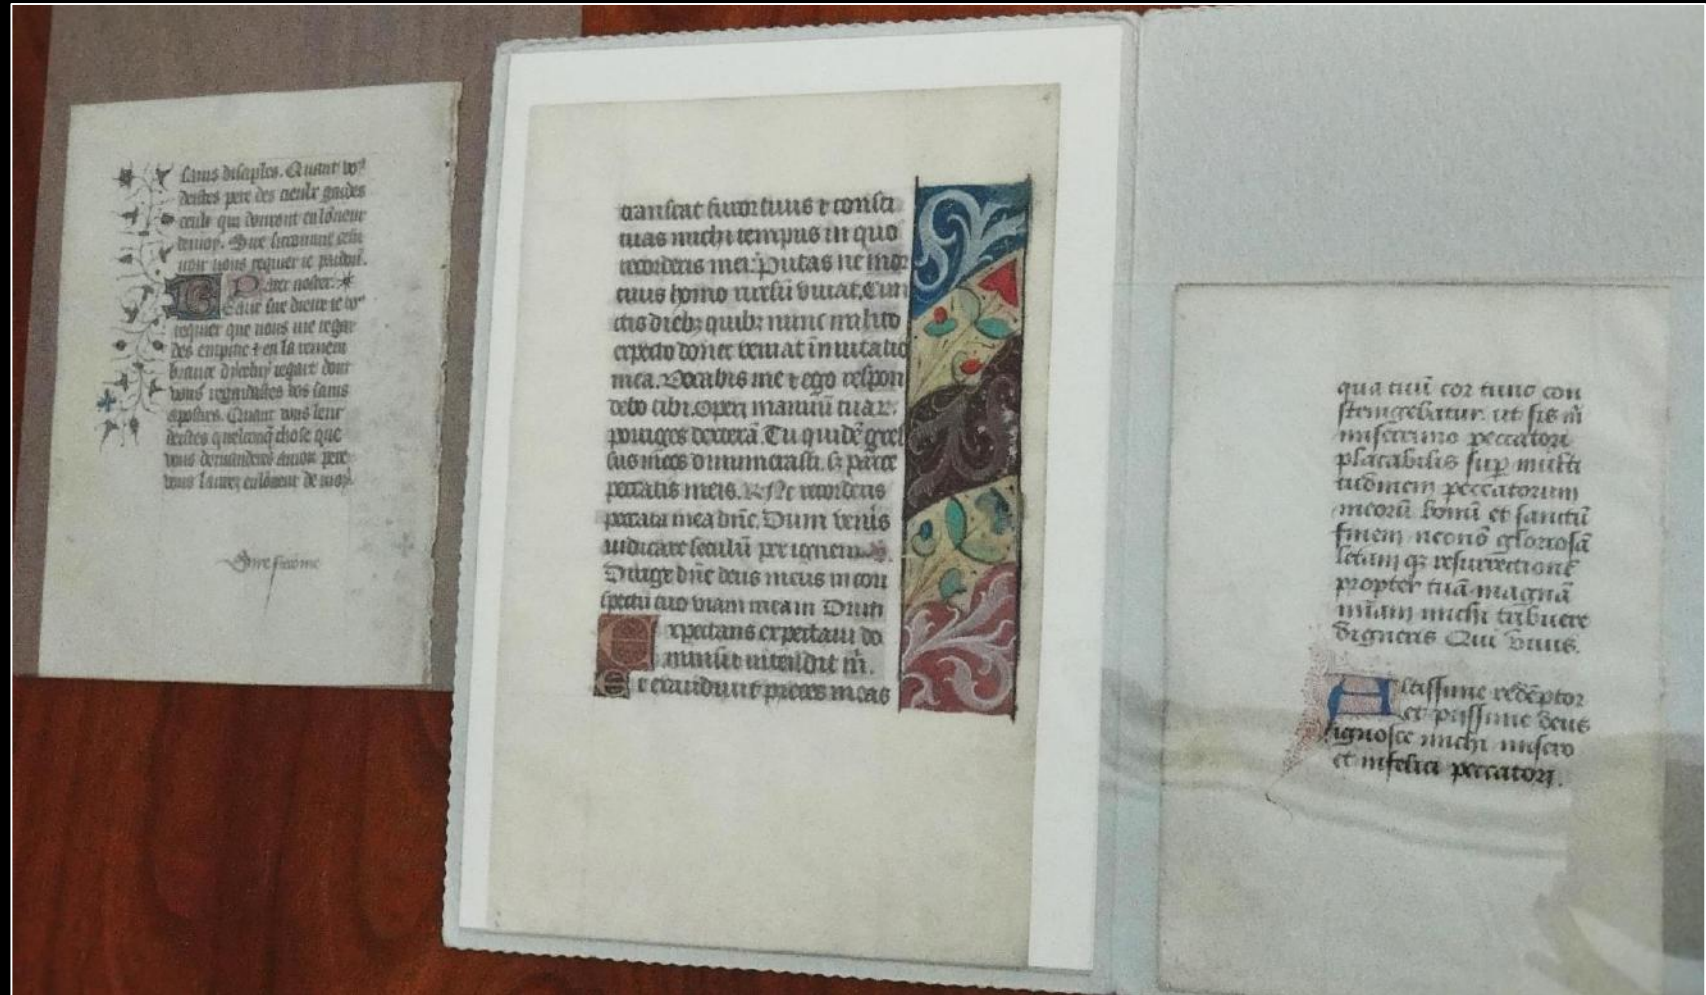 sains disciples. Quant vo⁹
deistes pere des cieulx gardes
ceulx qui donront en lõneur
de moy. Sire si comme cest
voir nous requier ie pardon.
Pater noster.
Beau sire dieux ie vo⁹
requier que vous me regar
des en pitie ⁊ en la remem
brance
vous regardastes vos sains
apostres. Quant vous leur
deistes quelconq̃ chose que
vous demanderes a mon pere
vous laurez en lõneur de moy.
Sire si cõme
transeat furor tuus ⁊ consti
tuas michi tempus in quo
recorderis mei. Putas ne mor
tuus homo rursũ vivat. Cun
ctis dieb; quib; nunc milito
expecto donec veniat inmutatio
mea. Vocabis me ⁊ ego respon
debo tibi. operi manuũ tuaꝝ.
porriges dexterã. Tu quidẽ gres
sus meos dinumerasti. s; parce
peccatis meis. ℟ Ne recorderis
peccata mea dñe. Dum veñis
iudicare seculũ per ignem.
Dirige dñe deus meus in con
spectu tuo viam meam Dum
Expectans expectaui do
minũ ⁊ intendit m̃.
Et exaudiuit preces meas
qua tuũ cor tunc con
stringebatur. ut sis m̃
miserrimo peccatori
placabilis sup̱ multi
tudinem peccatorum
meorũ bonũ et sanctũ
finem necnõ gloriosã
letam q; resurrectionẽ
propter tuã magnã
mĩam michi tribuere
digneris Qui viuis.
Altissime redẽptor
et piissime deus
ignosce michi misero
et infelici peccatori.